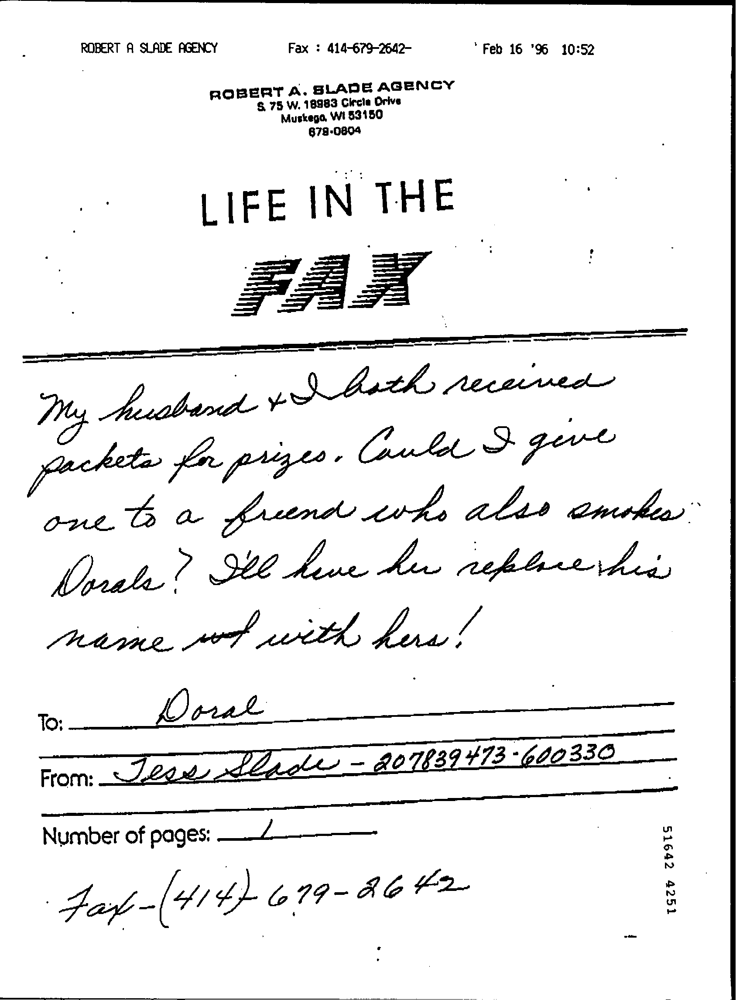 ROBERT A SLADE AGENCY Fax : 414-679-2642- Feb 16 '96 10:52
ROBERT A. SLADE AGENCY
S. 75 W. 18983 Circle Drive
Muskego, WI 53150
679-0804
LIFE IN THE
FAX
My husband & I both received
packets for prizes. Could I give
one to a friend who also smokes
Dorals? I'll have her replace his
name with hers!
To: Doral
From: Jess Slade - 207839473-600330
Number of pages: 1
Fax-(414)-679-2642
51642 4251